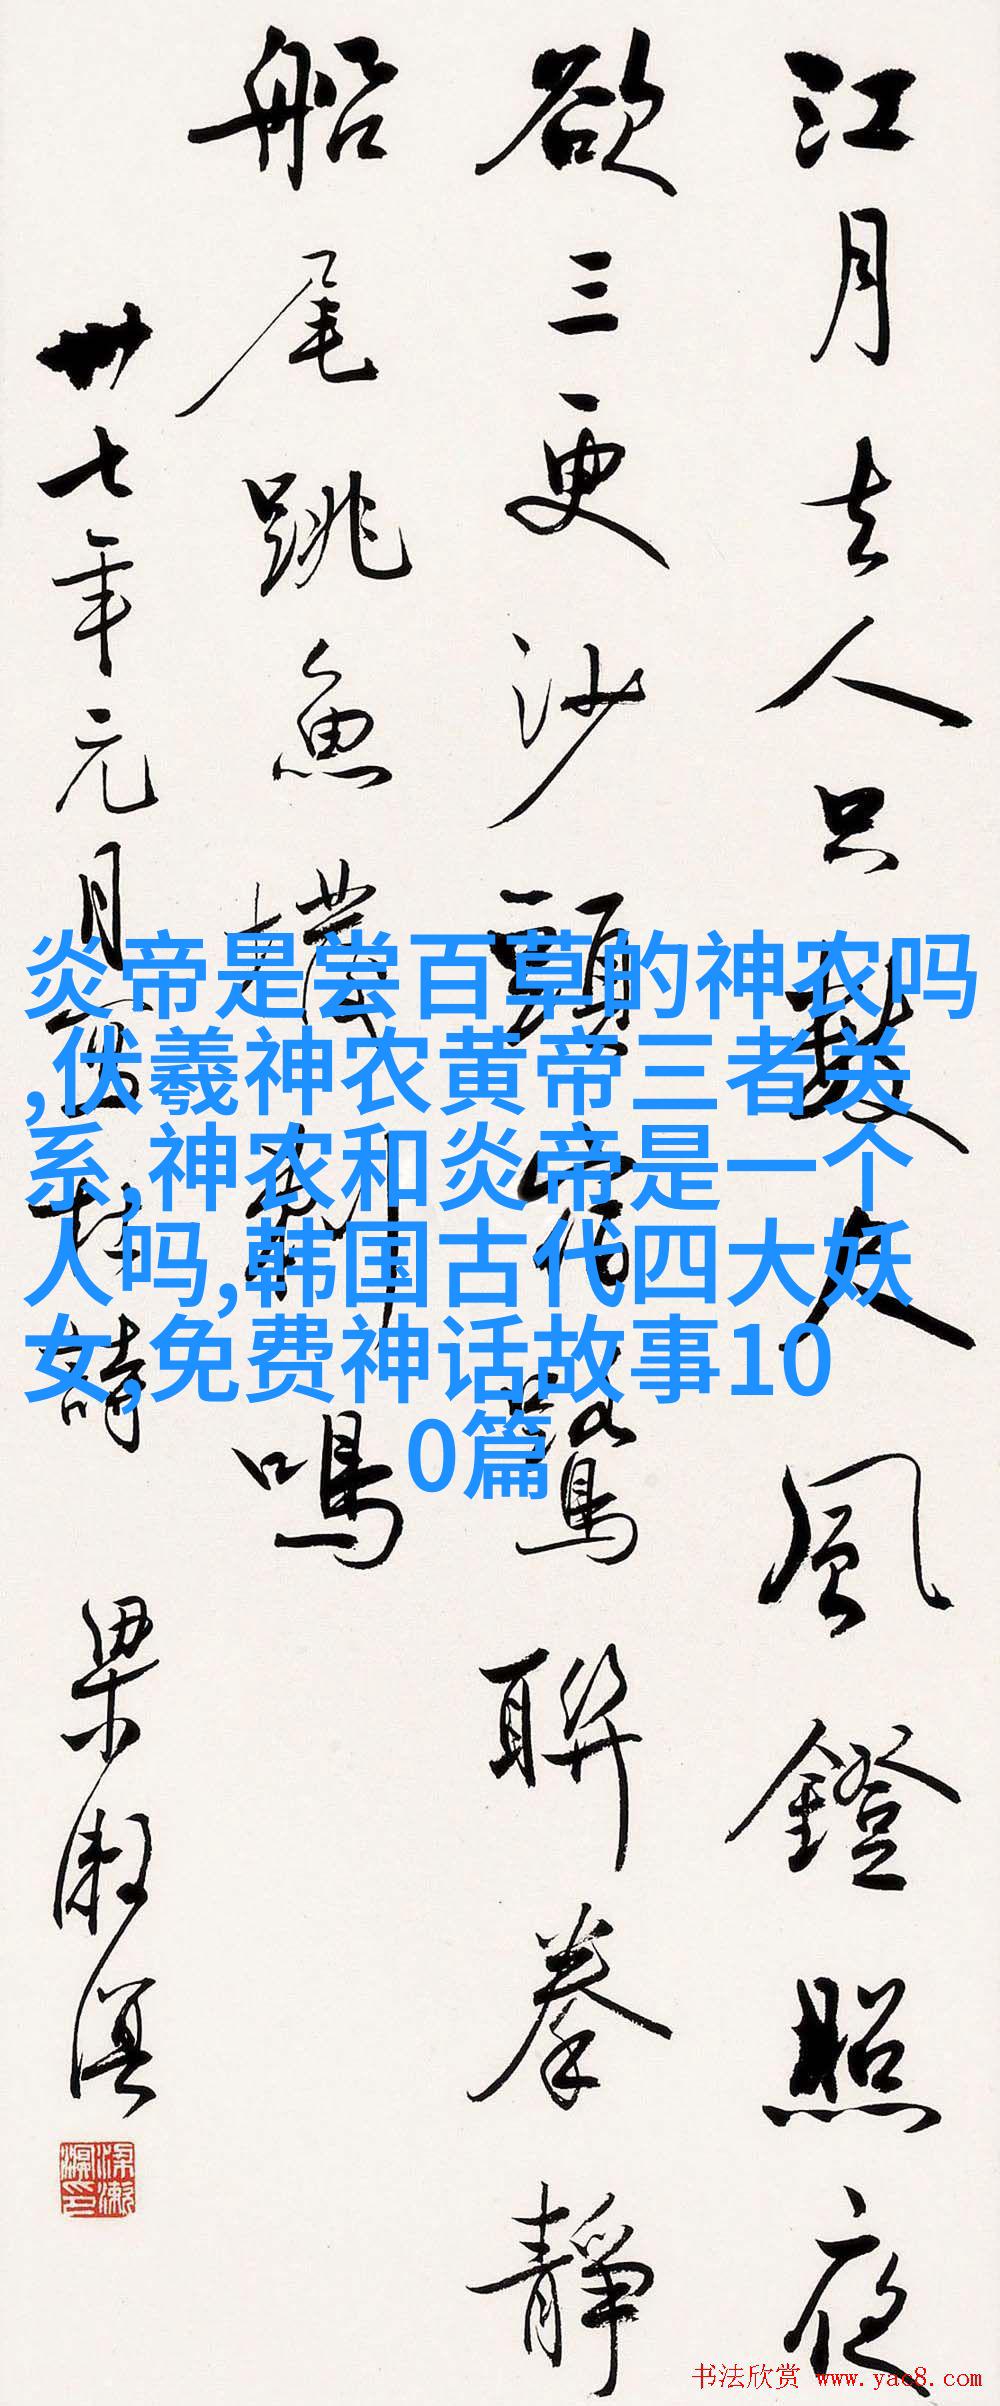 江月去人只數尺風鐙照夜
欲三更沙頭宿鷺聯拳靜
船尾跳魚撥剌鳴
卅七年元月杜詩 梁漱溟
梁漱溟印
炎帝是尝百草的神农吗
,伏羲神农黄帝三者关
系,神农和炎帝是一个
人吗,韩国古代四大妖
女,免费神话故事10
0篇
书法欣赏 www.yac8.com